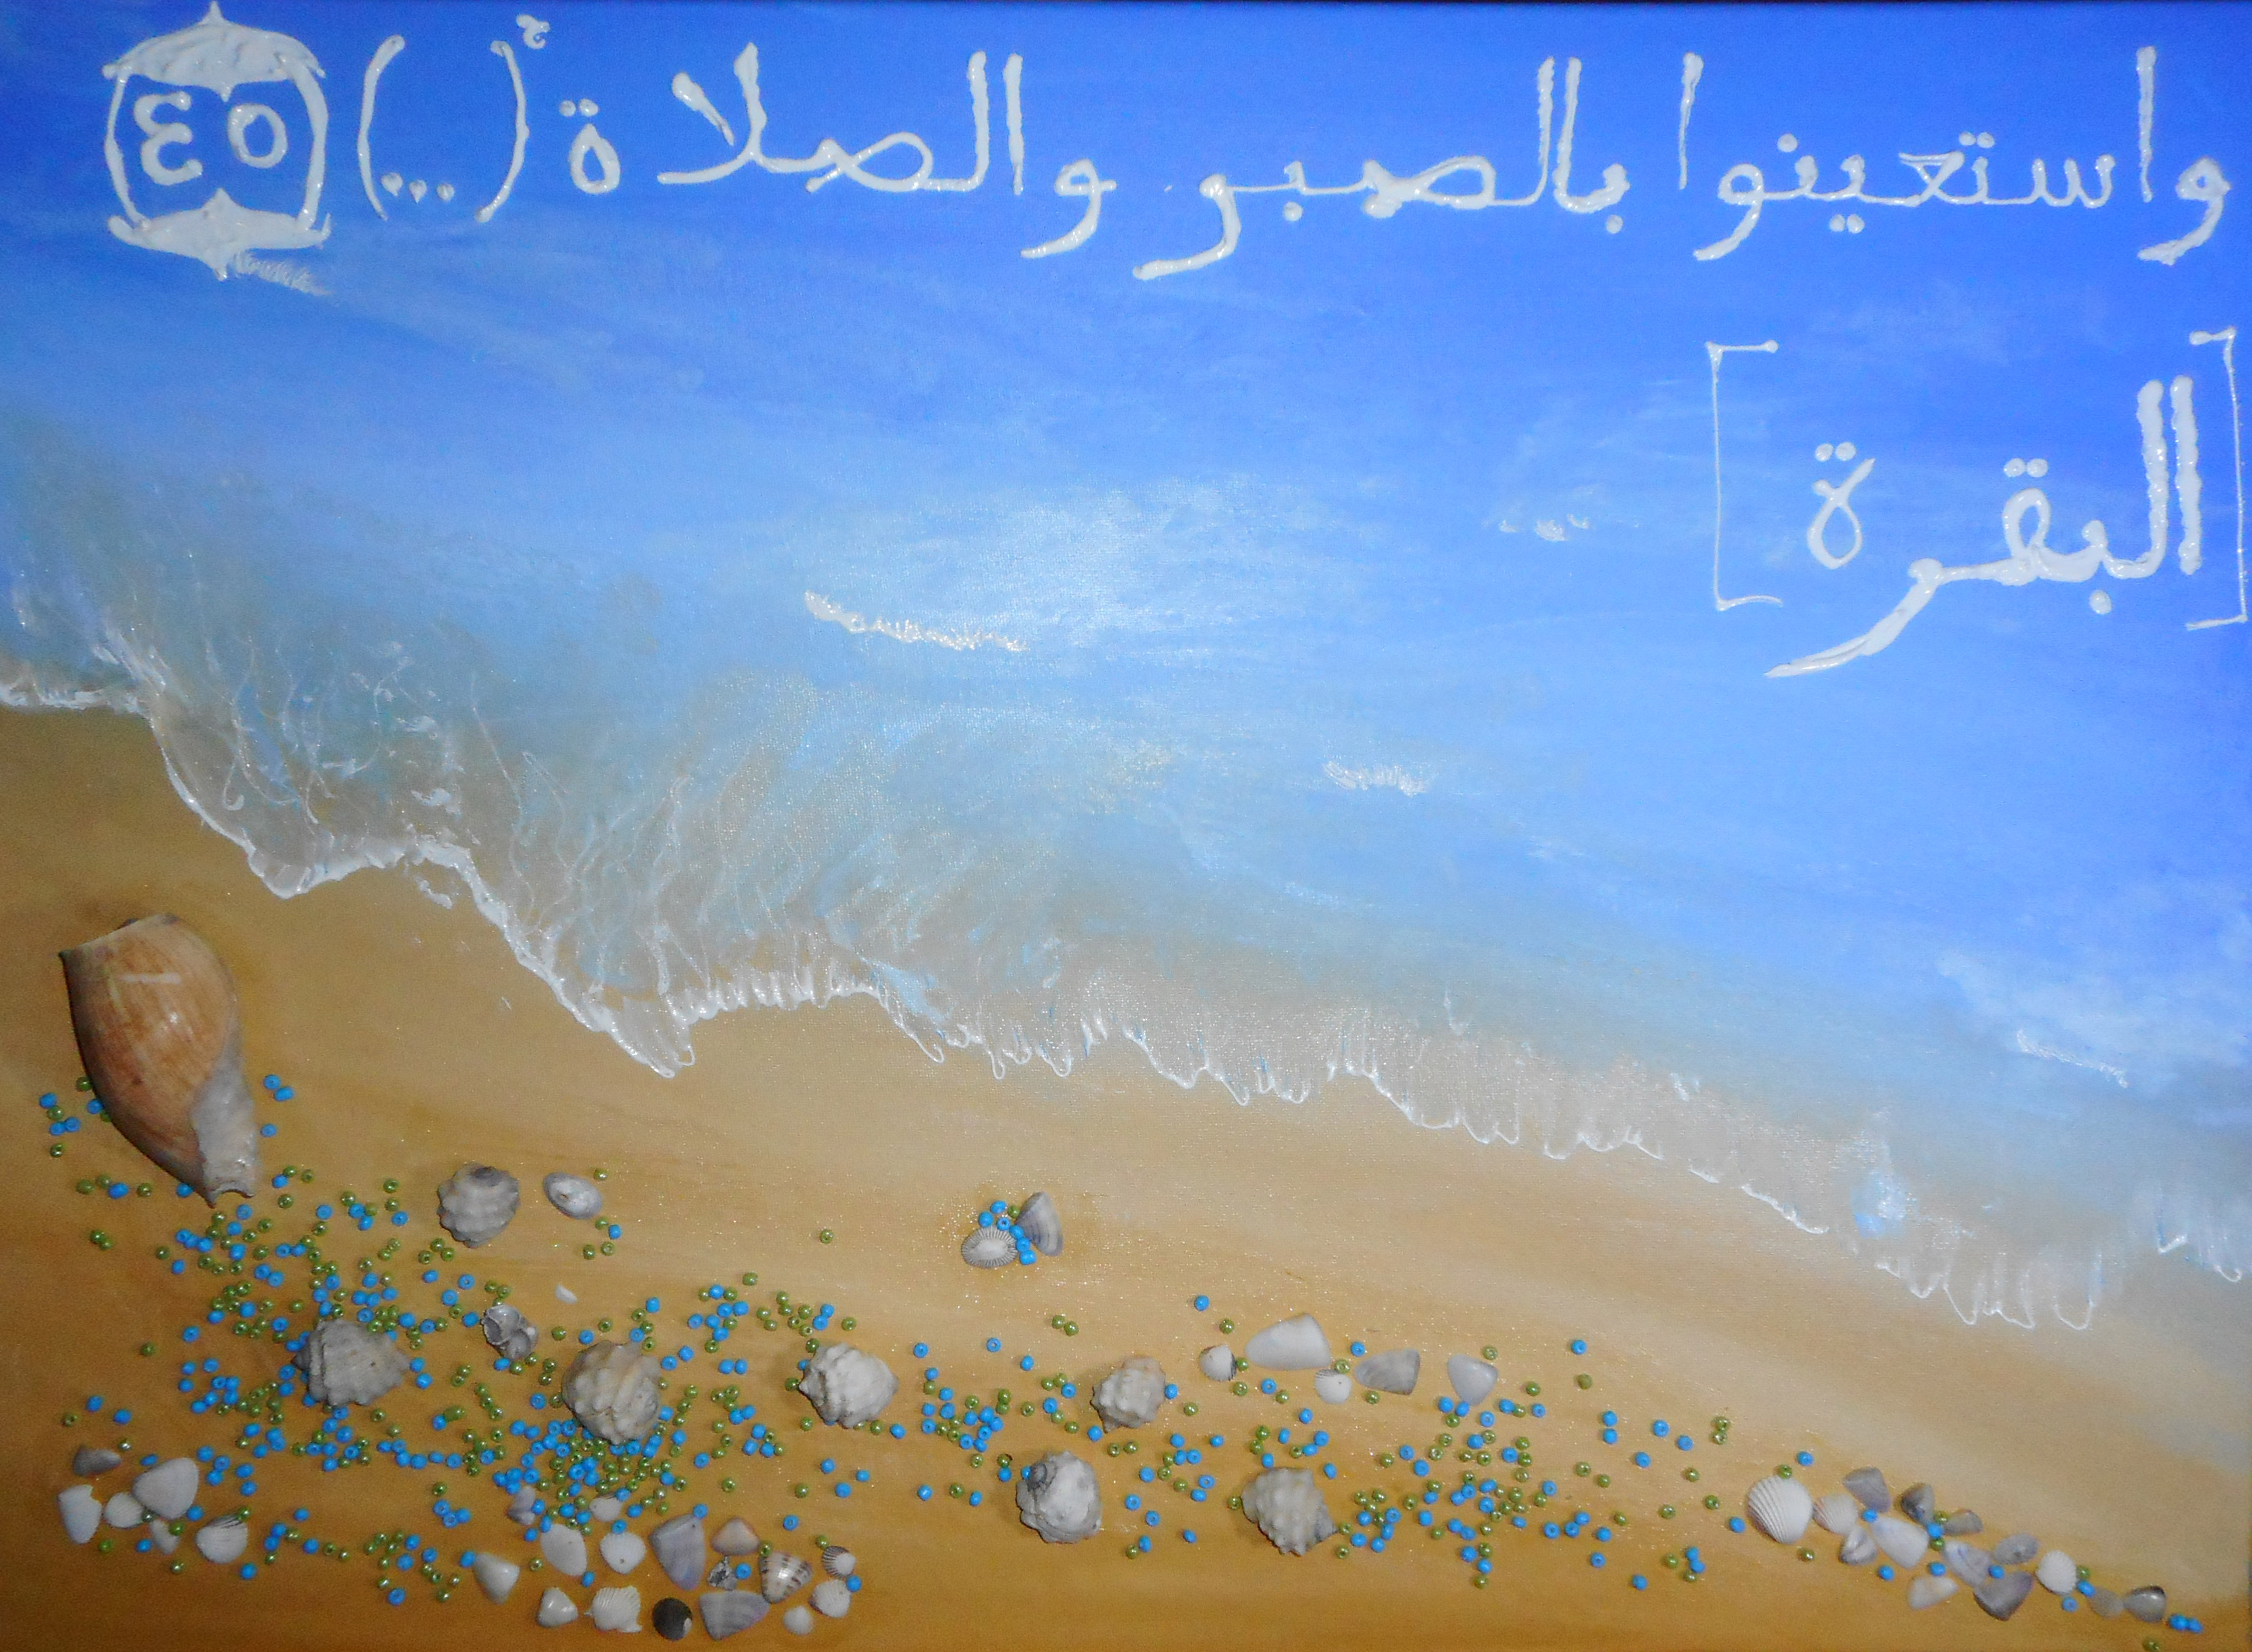 واستعينوا بالصبر والصلاة ۚ (...) ٤٥
[البقرة]